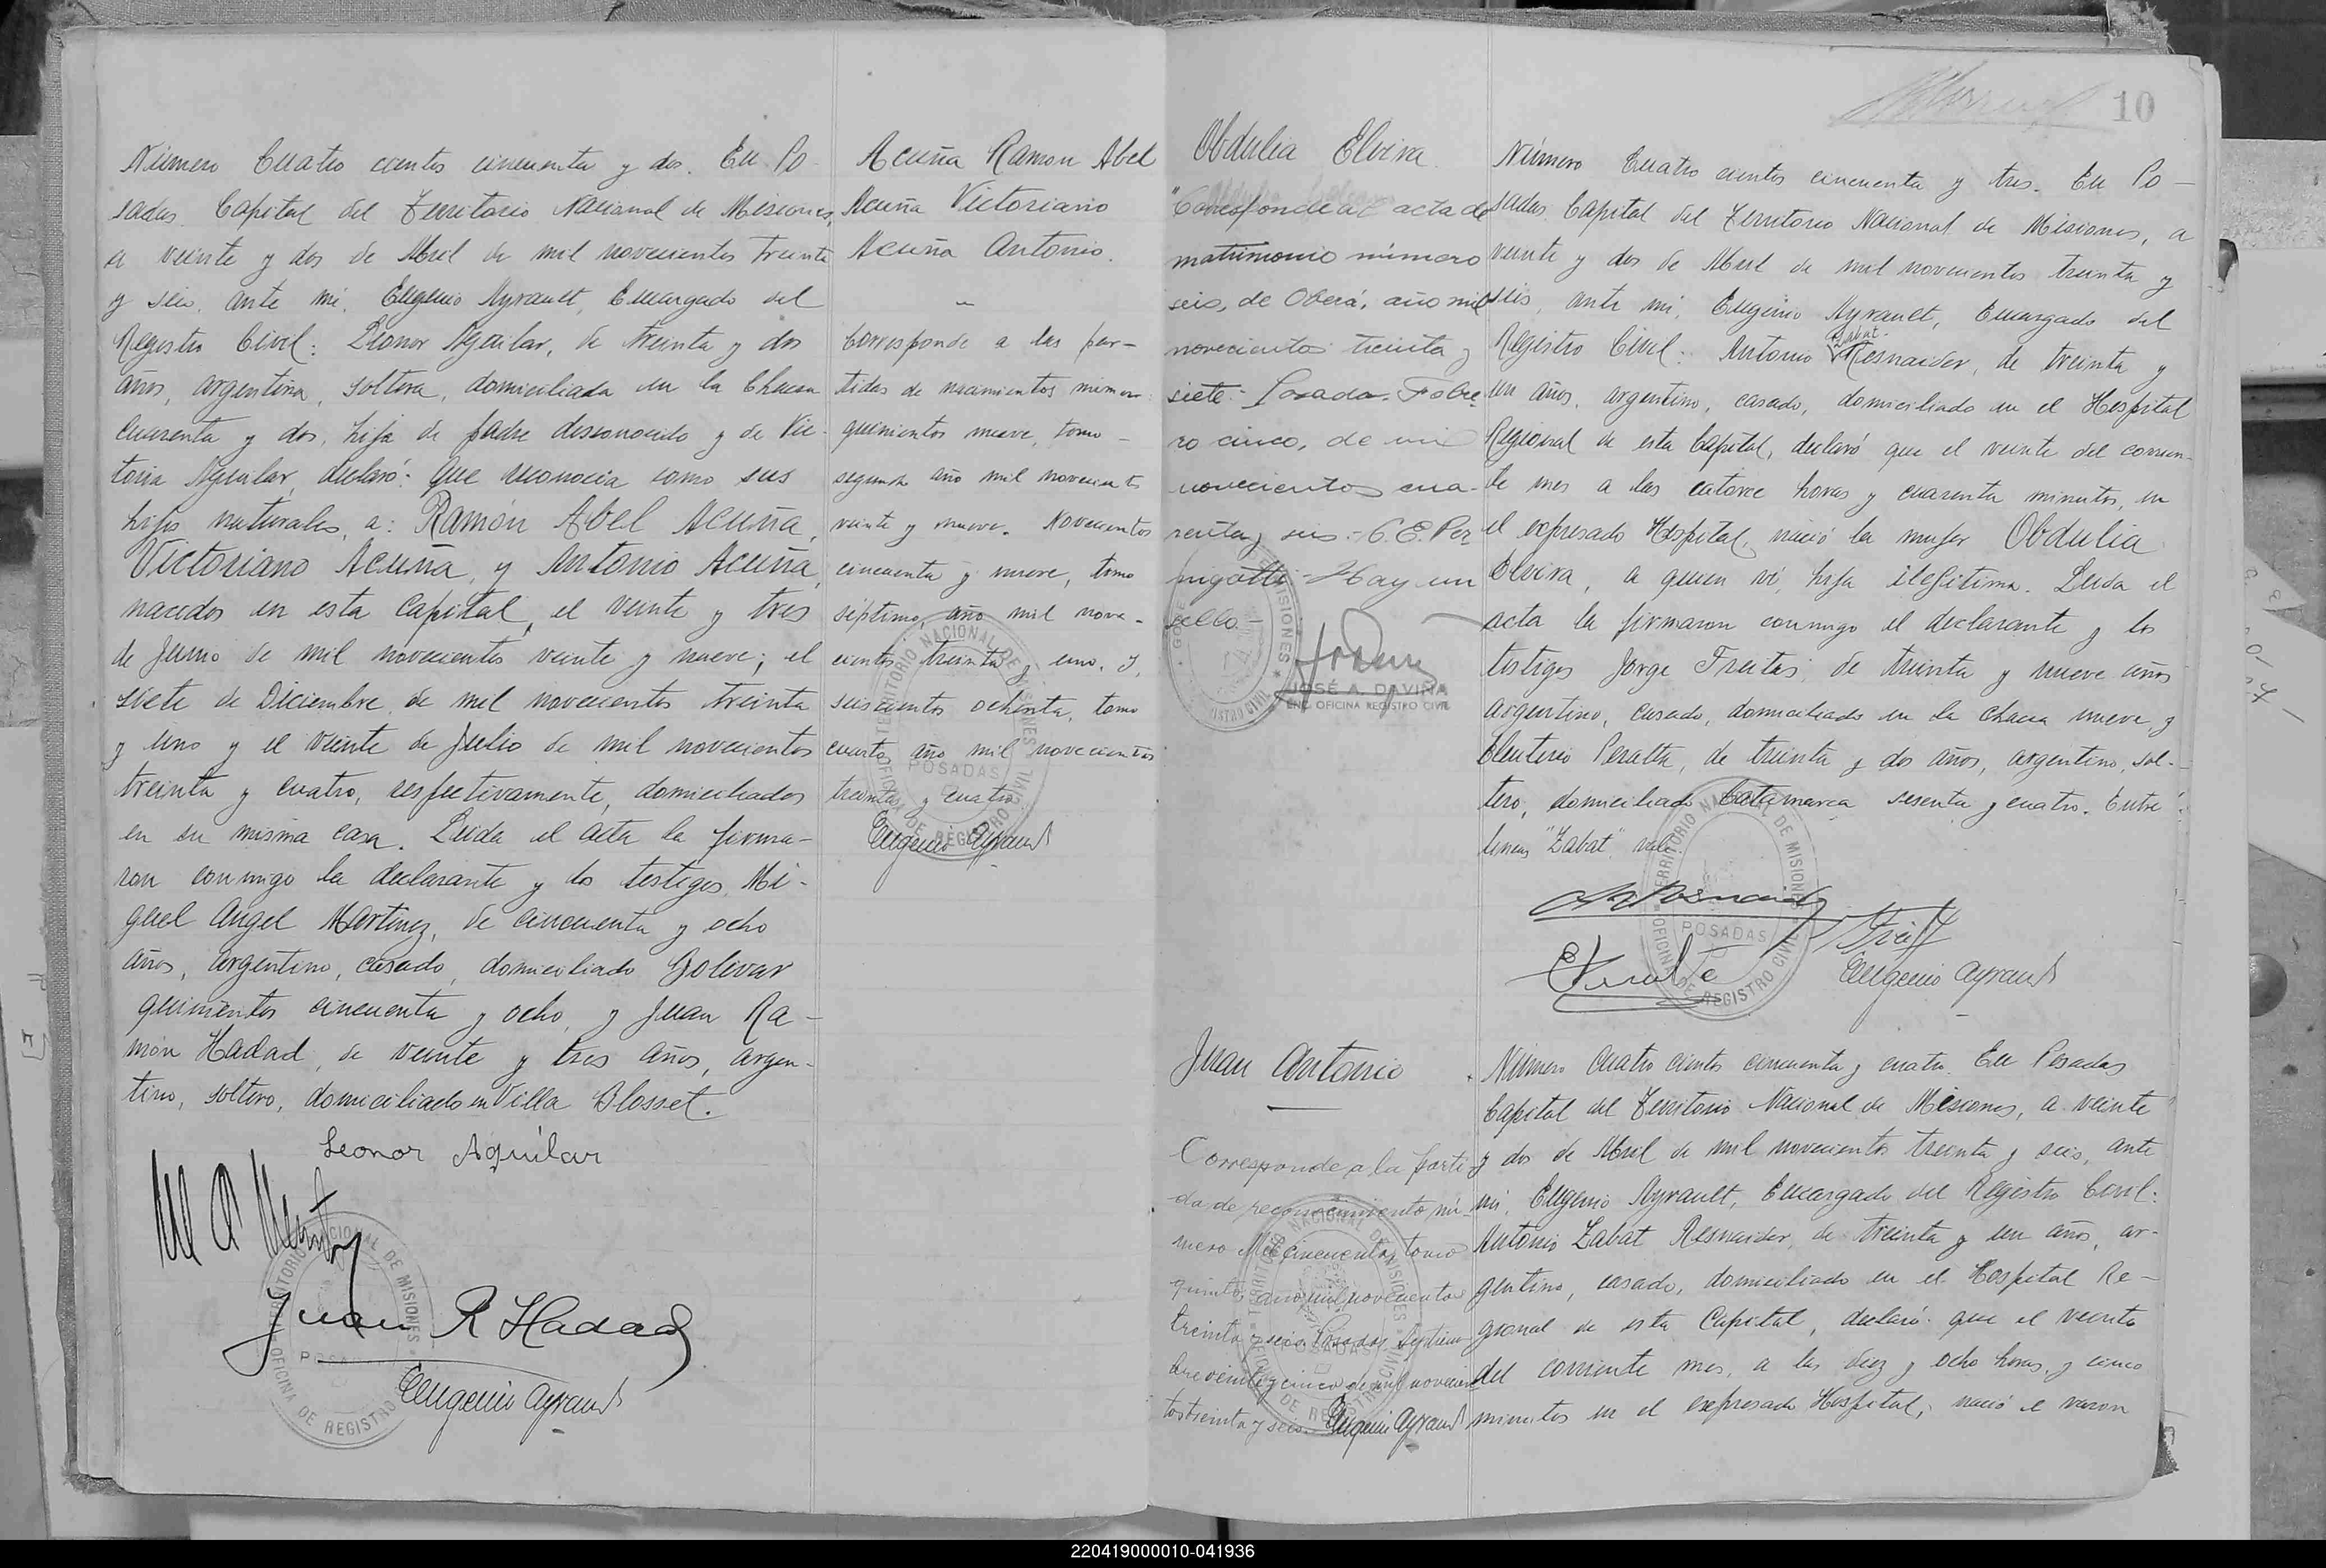 Número Cuatro cientos cincuenta y dos. En Po-
sadas, Capital del Territorio Nacional de Misiones,
a veinte y dos de Abril de mil novecientos treinta
y seis, ante mí, Eugenio Ayrault, Encargado del
Registro Civil: Leonor Aguilar, de treinta y dos
años, argentina, soltera, domiciliada en la Chacra
cuarenta y dos, hija de padre desconocido y de Vic-
toria Aguilar, declaró: Que reconocía como sus
hijos naturales, a: Ramón Abel Acuña,
Victoriano Acuña, y Antonio Acuña,
nacidos en esta Capital, el veinte y tres
de Junio de mil novecientos veinte y nueve; el
siete de Diciembre de mil novecientos treinta
y uno y el veinte de Julio de mil novecientos
treinta y cuatro, respectivamente, domiciliados
en su misma casa. Leida el acta la firma-
ron conmigo la declarante y los testigos Mi-
guel Angel Martinez, de cincuenta y ocho
años, argentino, casado, domiciliado Bolivar
quinientos cincuenta y ocho, y Juan Ra-
món Hadad, de veinte y tres años, argen-
tino, soltero, domiciliado en Villa Blosset.
Leonor Aguilar
Juan R Hadad
Eugenio Ayrault
TERRITORIO NACIONAL DE MISIONES
POSADAS
OFICINA DE REGISTRO
Acuña Ramon Abel
Acuña Victoriano
Acuña Antonio.
Corresponde a las par-
tidas de nacimientos número
quinientos nueve, tomo
segundo año mil novecientos
veinte y nueve. Novecientos
cincuenta y nueve, tomo
séptimo, año mil nove-
cientos treinta y uno. Y,
seiscientos ochenta, tomo
cuarto año mil novecientos
treinta y cuatro
Eugenio Ayrault
TERRITORIO NACIONAL DE MISIONES
POSADAS
OFICINA DE REGISTRO CIVIL
Obdulia Elvira
"Corresponde al acta de
matrimonio número
seis, de Oberá, año mil
novecientos treinta y
siete.- Posadas. Febre-
ro cinco, de mil
novecientos cua-
renta y seis.- C. E. Per
Hay un
sello.-
JOSÉ A. DAVIÑA
ENC. OFICINA REGISTRO CIVIL
10
Número Cuatro cientos cincuenta y tres. En Po-
sadas, Capital del Territorio Nacional de Misiones, a
veinte y dos de Abril de mil novecientos treinta y
seis, ante mí, Eugenio Ayrault, Encargado del
Zabat
Registro Civil: Antonio Resnaider, de treinta y
un años, argentino, casado, domiciliado en el Hospital
Regional de esta Capital, declaró que el veinte del corrien-
te mes a las catorce horas y cuarenta minutos, en
el expresado Hospital, nació la mujer Obdulia
Elvira, a quien ví, hija ilegitima. Leida el
acta la firmaron conmigo el declarante y los
testigos Jorge Freitas, de treinta y nueve años
argentino, casado, domiciliado en la chacra nueve, y
Eleuterio Peralta, de treinta y dos años, argentino, sol-
tero, domiciliado Catamarca sesenta y cuatro. Entre
lineas "Zabat" vale.
Eugenio Ayrault
TERRITORIO NACIONAL DE MISIONES
POSADAS
OFICINA DE REGISTRO CIVIL
Juan Antonio
Corresponde a la parti
da de reconocimiento nú-
mero Mil cincuenta, tomo
quinto, año mil novecientos
treinta y seis. Posadas, Septiem-
bre veinte y cinco de mil novecien
tos treinta y seis. Eugenio Ayrault
Número Cuatro cientos cincuenta y cuatro. En Posadas
Capital del Territorio Nacional de Misiones, a veinte
y dos de Abril de mil novecientos treinta y seis, ante
mí, Eugenio Ayrault, Encargado del Registro Civil:
Antonio Zabat Resnaider, de treinta y un años, ar-
gentino, casado, domiciliado en el Hospital Re-
gional de esta Capital, declaró que el veinte
del corriente mes, a las diez y ocho horas, y cinco
minutos en el expresado Hospital, nació el varon
220419000010-041936